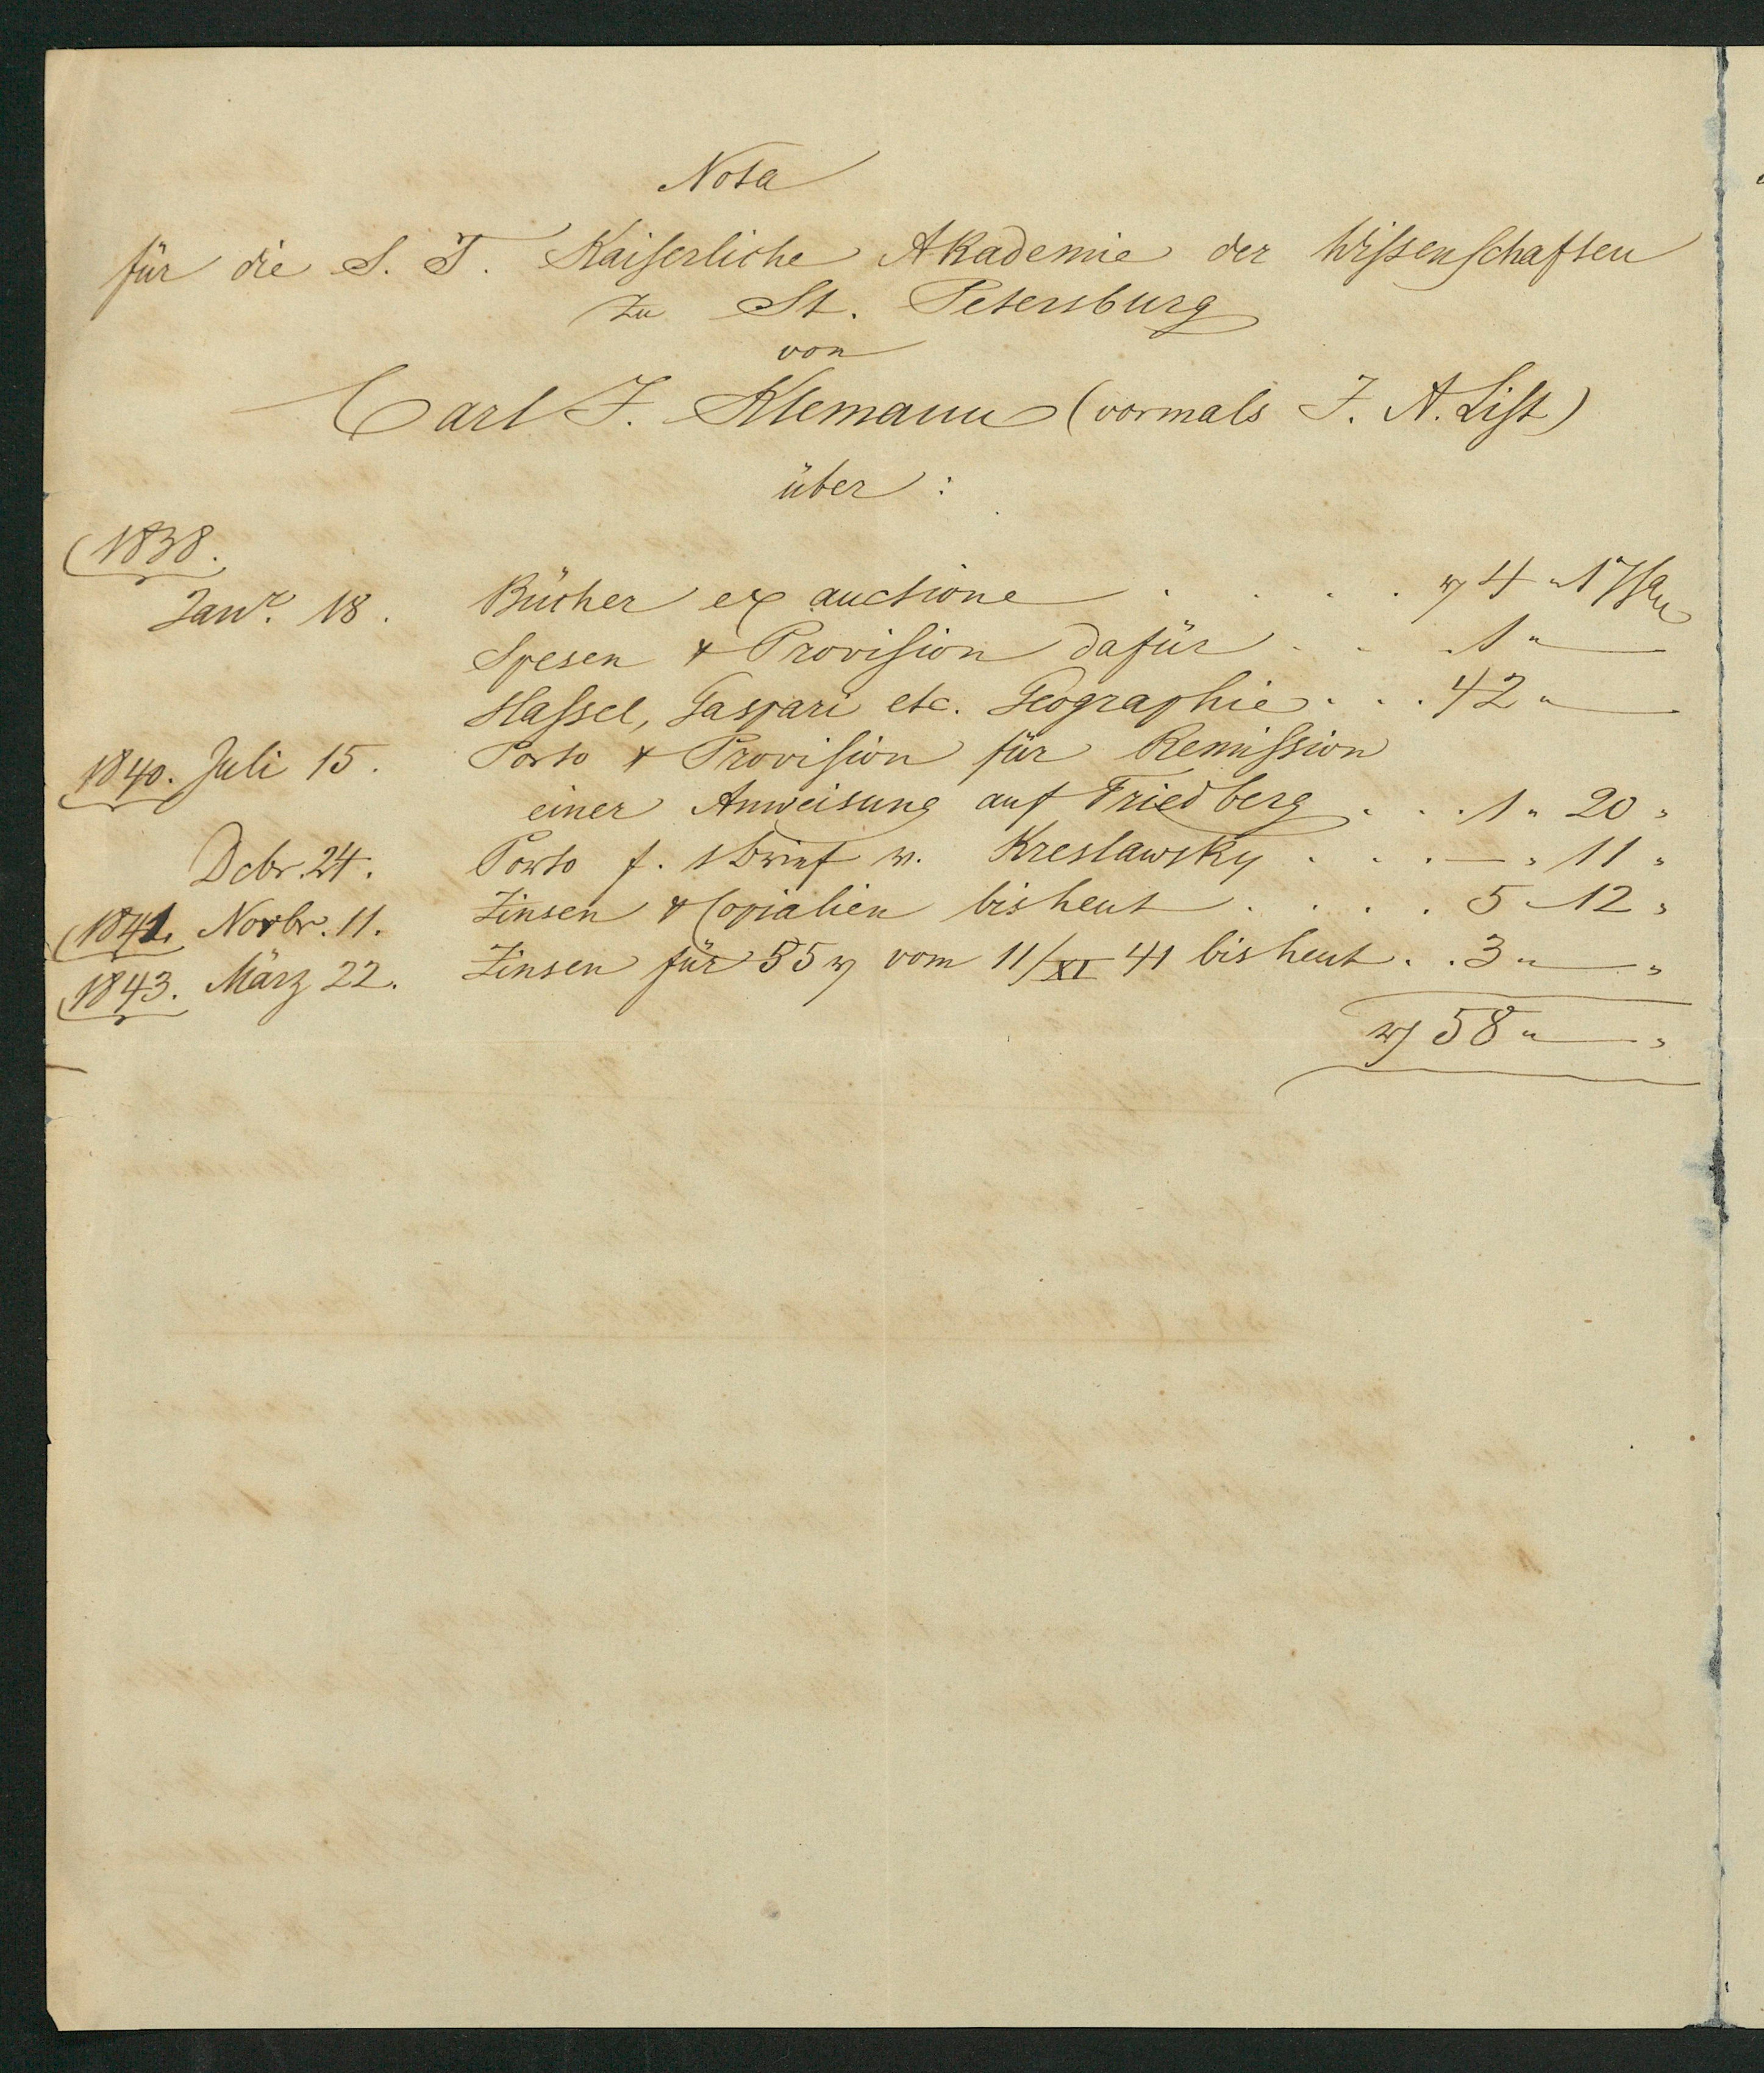 Nota
für die S. T. Kaiserliche Akademie der Wissenschaften
zu St. Petersburg
von
Carl J. Klemann (vormals J. A. List)
über:
1838.
Janr. 18. Bücher ex auctione . . . . 4 " 17 sgr
Spesen & Provision dafür . . . 1 " —
Hassel, Gaspari etc. Geographie . . . 42 " —
1840. Juli 15. Porto & Provision für Remission
einer Anweisung auf Friedberg . . . 1 " 20 "
Debr. 24. Porto f. 1 Brief v. Kreslawsky . . . — " 11 "
1841. Novbr. 11. Zinsen & Copialien bis heut . . . . 5 " 12 "
1843. März 22. Zinsen für 55 vom 11/XI 41 bis heut . . 3 " — "
58 " — "